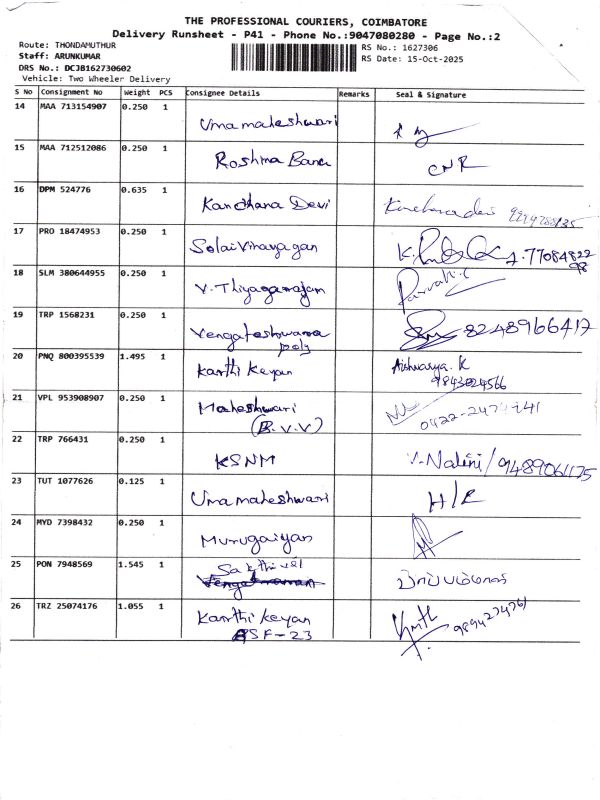 THE PROFESSIONAL COURIERS, COIMBATORE
Delivery Runsheet - P41 - Phone No.:9047080280 - Page No.:2
Route: THONDAMUTHUR
RS No.: 1627306
Staff: ARUNKUMAR
RS Date: 15-Oct-2025
DRS No.: DCJB162730602
Vehicle: Two Wheeler Delivery
S No Consignment No Weight PCS Consignee Details Remarks Seal & Signature
14 MAA 713154907 0.250 1 Umamaheshwari
15 MAA 712512086 0.250 1 Roshma Banu CNR
16 DPM 524776 0.635 1 Kanchana Devi
17 PRO 18474953 0.250 1 Solai Vinayagan 77084822
98
18 SLM 380644955 0.250 1 V. Thiyagarajan
19 TRP 1568231 0.250 1 Vengateshwara 8248966417
poly
20 PNQ 800395539 1.495 1 Karthi Keyan Aishwarya. K
9843024566
21 VPL 953908907 0.250 1 Maheshwari
(B.V.V)
22 TRP 766431 0.250 1 KSNM Nalini / 9489061175
23 TUT 1077626 0.125 1 Umamaheshwari H/R
24 MYD 7398432 0.250 1 Murugaiyan
25 PON 7948569 1.545 1 Sakthivel
26 TRZ 25074176 1.055 1 Karthi Keyan
SF-23